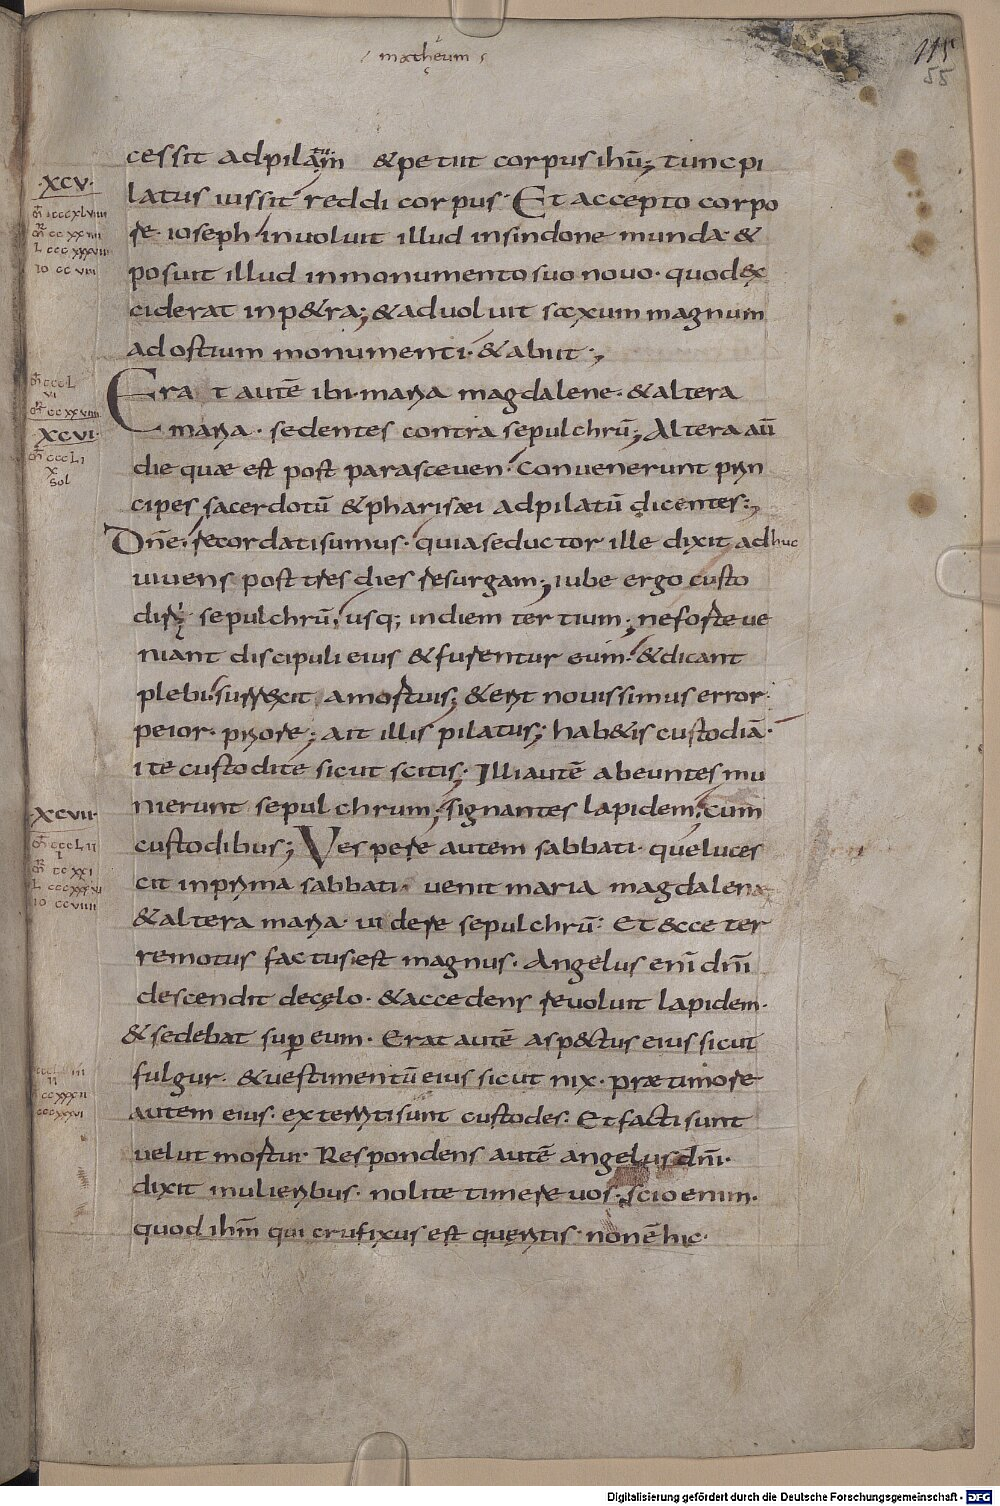 matheum
115
55
cessit adpilatum &petiit corpus ihū; tunc pi
latus iussit reddi corpus· Et accepto corpo
re· ioseph inuoluit illud insindone munda &
posuit illud inmonumento suo nouo· quodex
ciderat inp&ra; &aduoluit saxum magnum
adostium monumenti· &abiit;
Erat autē ibi· maria magdalene· &altera
maria· sedentes contra sepulchrū; Altera aū
die quae est post parasceuen· Conuenerunt prin
cipes sacerdotū &pharisaei adpilatū dicentes:,
Dn̄e· recordatisumus· quiaseductor ille dixit adhuc
uiuens post tres dies resurgam; iube ergo custo
diri sepulchrū; usq; indiem tertium; neforte ue
niant discipuli eius &furentur eum· &dicant
plebi· surrexit amortuis; &erit nouissimus error·
peior· priore; ait illis pilatus; hab&is custodiā·
ite custodite sicut scitis· Illiautē abeuntes mu
nierunt sepulchrum; signantes lapidem; cum
custodibus; Vespere autem sabbati· queluces
cit inprima sabbati· uenit maria magdalena
&altera maria· uidere sepulchrū· Et &cce ter
remotus factus est magnus· Angelus eni dn̄i
descendit decęlo· &accedens reuoluit lapidem·
&sedebat sup eum· Erat autē asp&ctus eius sicut
fulgur· &uestimentū eius sicut nix· prae timore
autem eius· exterriti sunt custodes· Et facti sunt
uelut mortui· Respondens autē angelus dn̄i·
dixit mulieribus· nolite timere uos· scio enim·
quod ihm̄ qui crufixus est quęritis· non ē hic·
·XCV·
·XCVI·
sol
·XCVII·
Digitalisierung gefördert durch die Deutsche Forschungsgemeinschaft - DFG